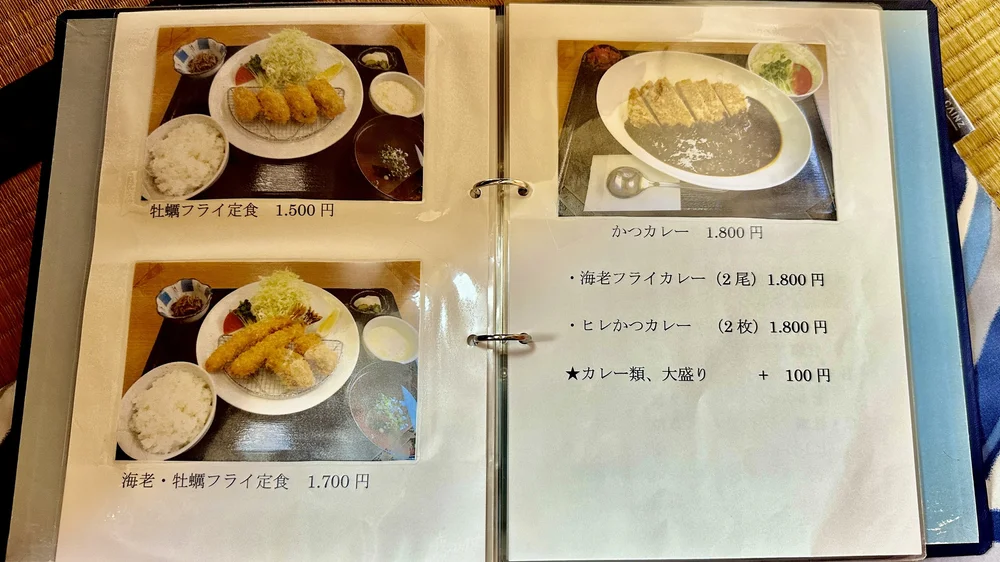 牡蠣フライ定食 1.500円
海老・牡蠣フライ定食 1.700円
かつカレー 1.800円
・海老フライカレー（2尾）1.800円
・ヒレかつカレー （2枚）1.800円
★カレー類、大盛り + 100円
CAINZ